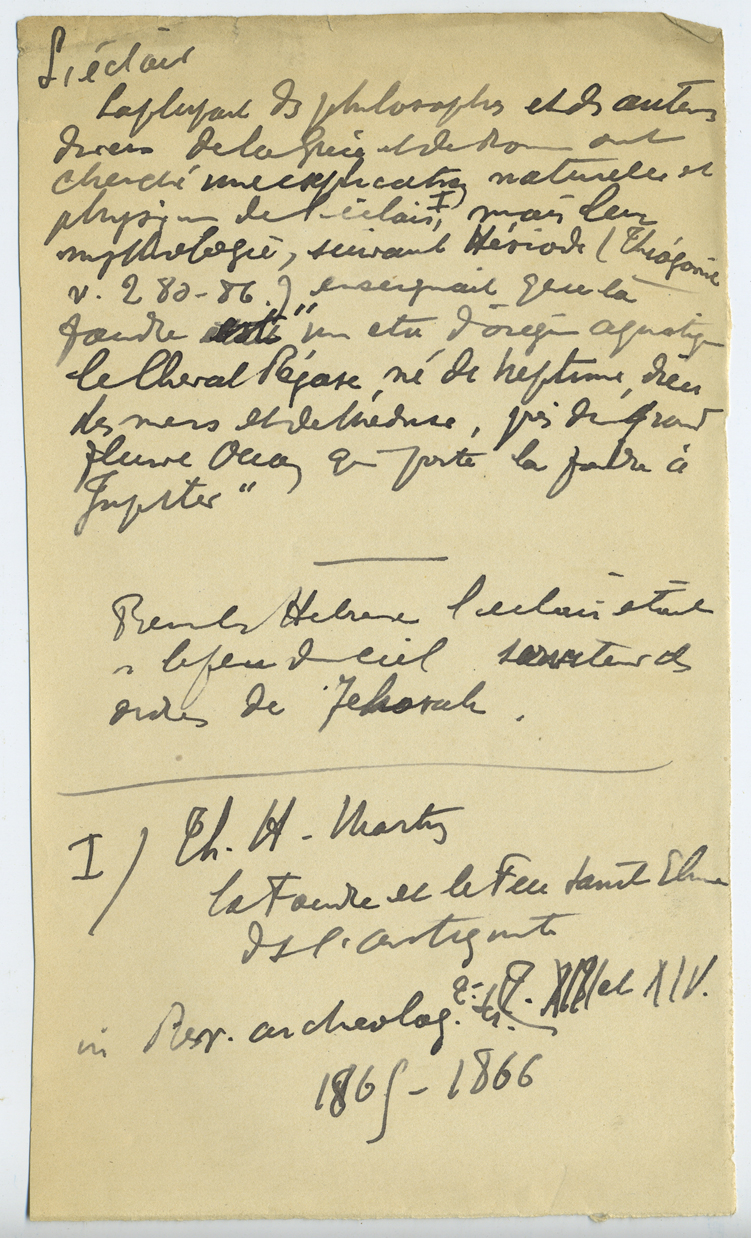 L'éclair
La plupart des philosophes et des auteurs
divers de la Grèce et de Rome ont
cherché une explication naturelle et
physique de l'éclair I), mais leur
mythologie, suivant Hésiode (Théogonie
v. 280-86.) enseignait que la
foudre "un être d'origine aquatique
le Cheval Pégase, né de Neptune, dieu
des mers et de Méduse, près du grand
fleuve Océan, qui porte la foudre à
Jupiter"
les Hébreux l'éclair était
le feu du ciel des
ordres de Jehovah.
I) Th. H. Martin
La Foudre et le Feu Saint Elme
ds l'antiquité
in Rev. archeolog. XIII et XIV.
1865-1866